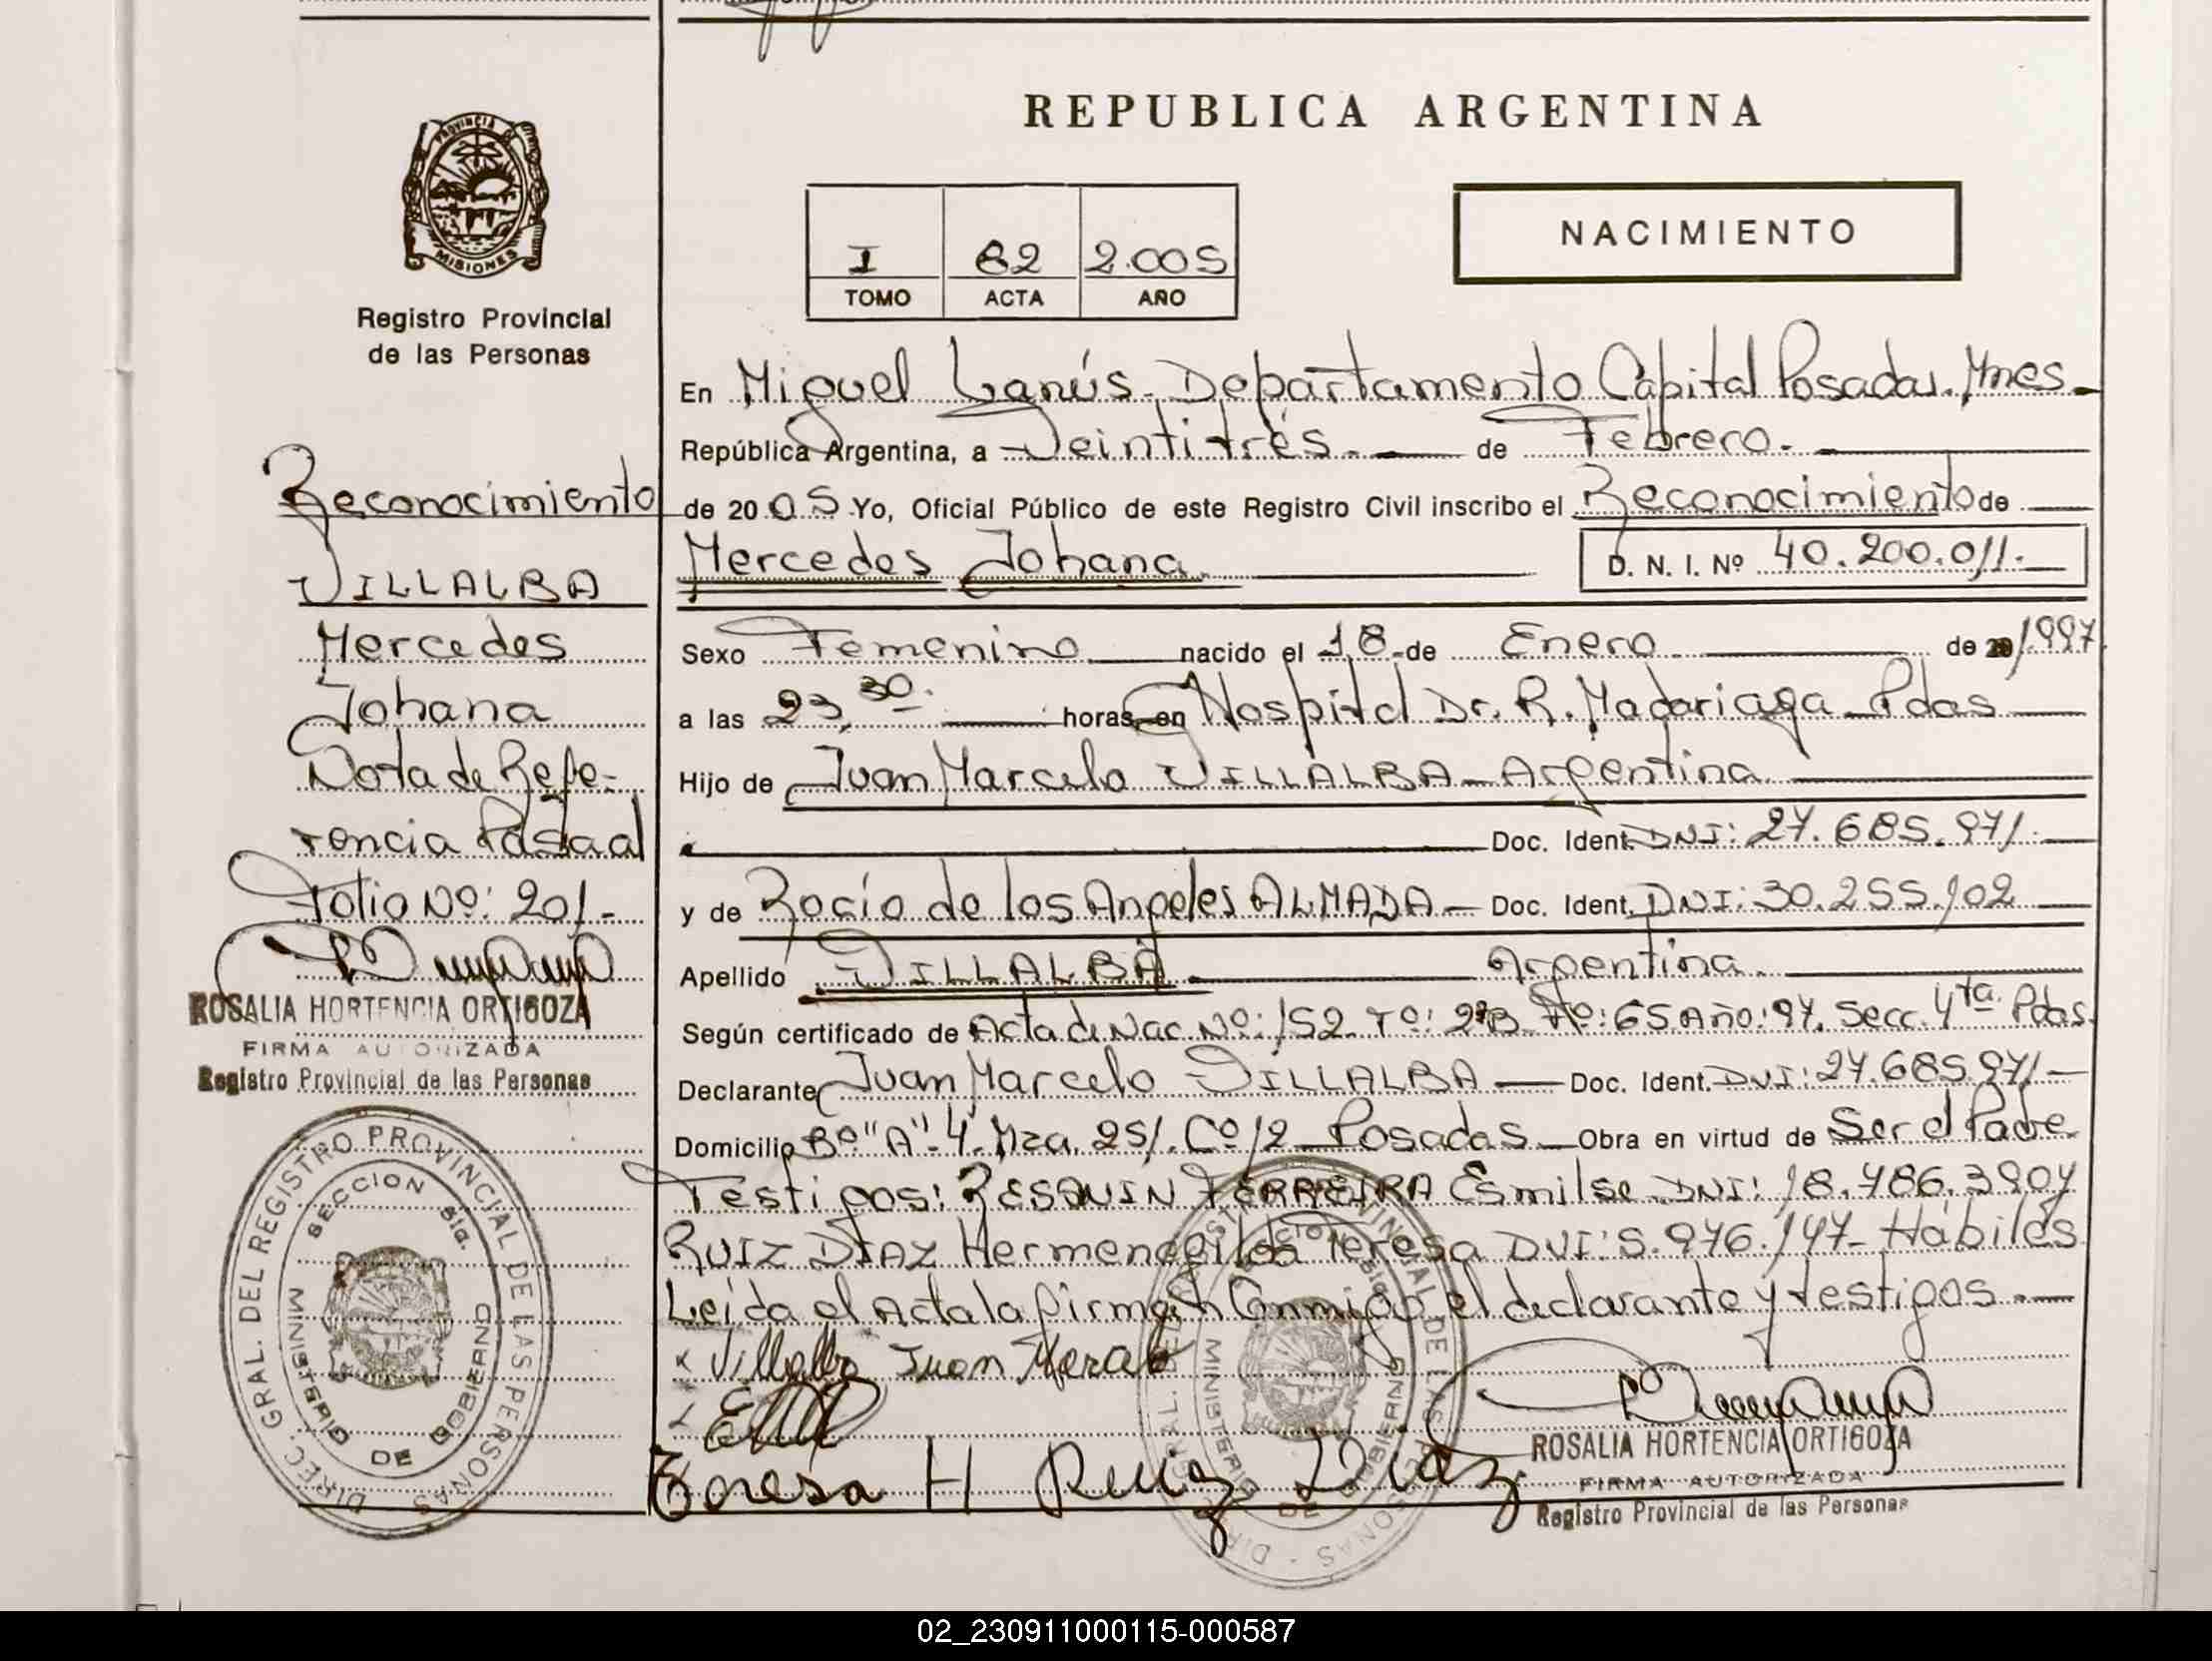 REPUBLICA ARGENTINA
PROVINCIA DE
MISIONES
Registro Provincial
de las Personas
I 82 2.005
TOMO ACTA AÑO
NACIMIENTO
Reconocimiento
VILLALBA
Mercedes
Johana
Nota de Refe-
rencia
Folio Nº: 201-
ROSALIA HORTENCIA ORTIGOZA
FIRMA AUTORIZADA
Registro Provincial de las Personas
DIREC. GRAL. DEL REGISTRO PROVINCIAL DE LAS PERSONAS
SECCION 5ta.
MINISTERIO DE GOBIERNO
En Miguel Lanús. Departamento Capital Posadas. Mnes.
República Argentina, a Veintitrés. de Febrero.
de 2005 Yo, Oficial Público de este Registro Civil inscribo el Reconocimiento de
Mercedes Johana. D. N. I. Nº 40.200.011.
Sexo Femenino nacido el 18 de Enero de 1997
a las 23,30. horas en Hospital Dr. R. Madariaga Pdas
Hijo de Juan Marcelo VILLALBA - Argentina
Doc. Ident. DNI: 27.685.971.
y de Rocío de los Angeles ALMADA - Doc. Ident. DNI: 30.255.102
Apellido VILLALBA. Argentina.
Según certificado de Acta de Nac. Nº: 152 Tº: Fº: 65 Año: 97. Secc. 4ta. Pdas.
Declarante Juan Marcelo VILLALBA - Doc. Ident. DNI: 27.685.971-
Domicilio Bº "A"-4. Mza. 251. Cº 12 - Posadas - Obra en virtud de Ser el Padre
Testigos: RESQUIN FERREIRA Esmilse DNI: 18.786.390 y
RUIZ DIAZ Hermenegilda Teresa DNI: 5.976.147- Hábiles
Leída el Acta la firman Conmigo el declarante y testigos.
x Villalba Juan Marcelo
Teresa H Ruiz Diaz
ROSALIA HORTENCIA ORTIGOZA
FIRMA AUTORIZADA
Registro Provincial de las Personas
MINISTERIO DE GOBIERNO
02_230911000115-000587